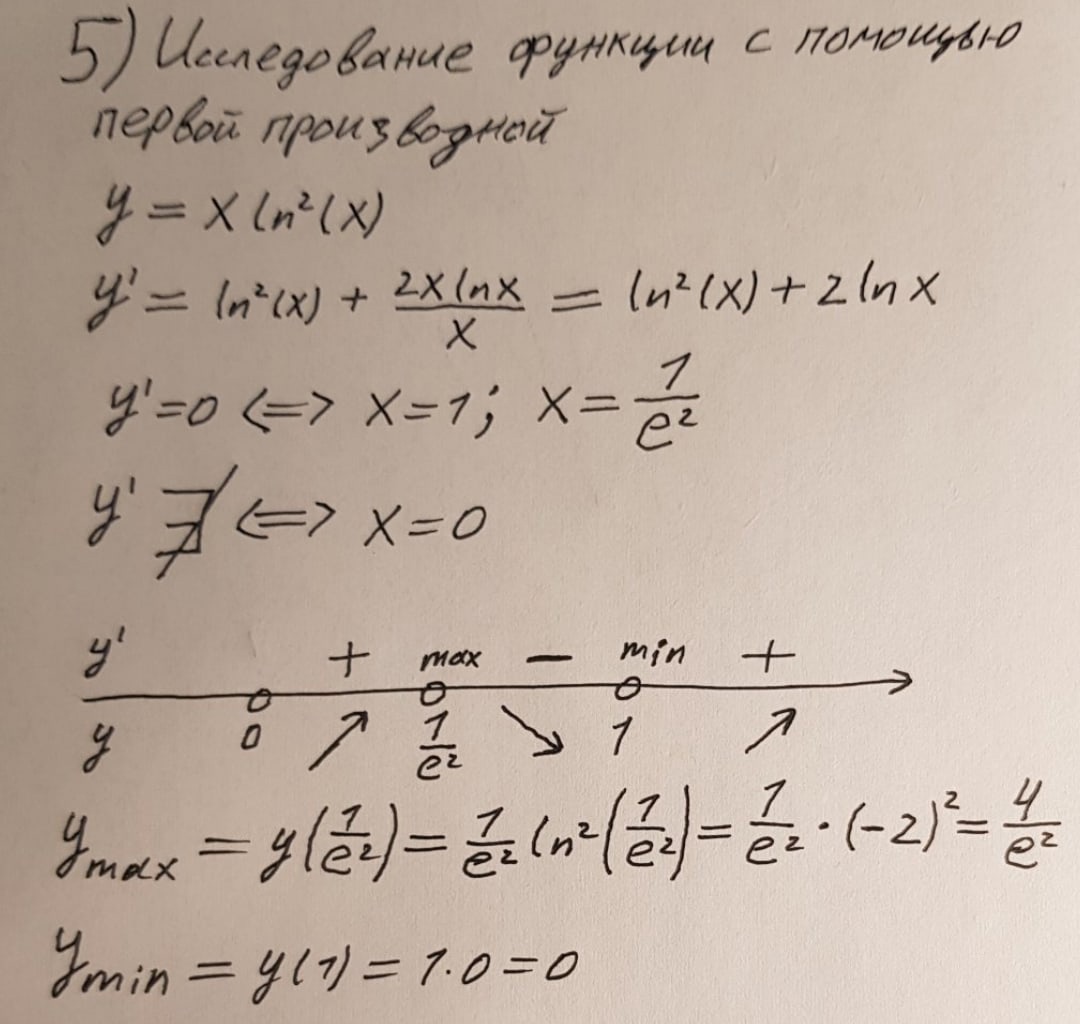 5) Исследование функции с помощью
первой производной
y = x ln²(x)
y' = ln²(x) + 2x ln x / x = ln²(x) + 2 ln x
y'=0 <=> x=1; x= 1/e²
y' ∄ <=> x=0
y' + max − min +
0 ↗ 1/e² ↘ 1 ↗
y
y max = y(1/e²) = 1/e² ln²(1/e²) = 1/e² · (-2)² = 4/e²
y min = y(1) = 1·0 = 0